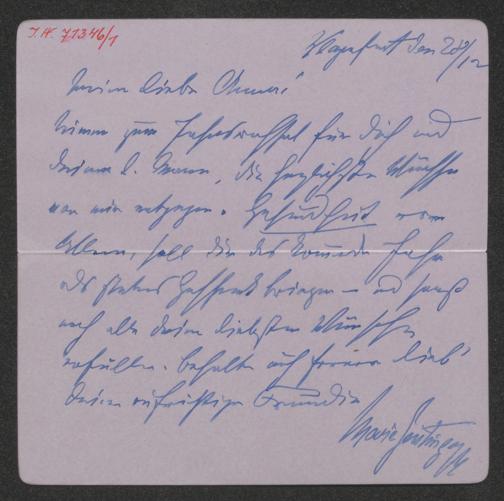 I.N. 71346/1
Klagenfurt den 28/12
Meine liebe Annerl
nimm zum Jahreswechsel für Dich und
Deinen l. Mann, die herzlichsten Wünsche
von mir entgegen. Gesundheit vor
Allem, soll Dir das kommende Jahr
als stetes Geschenk bringen – und sonst
noch alle Deine liebsten Wünsche
erfüllen. Behalte auch ferner lieb'
Deine aufrichtige Freundin
Marie